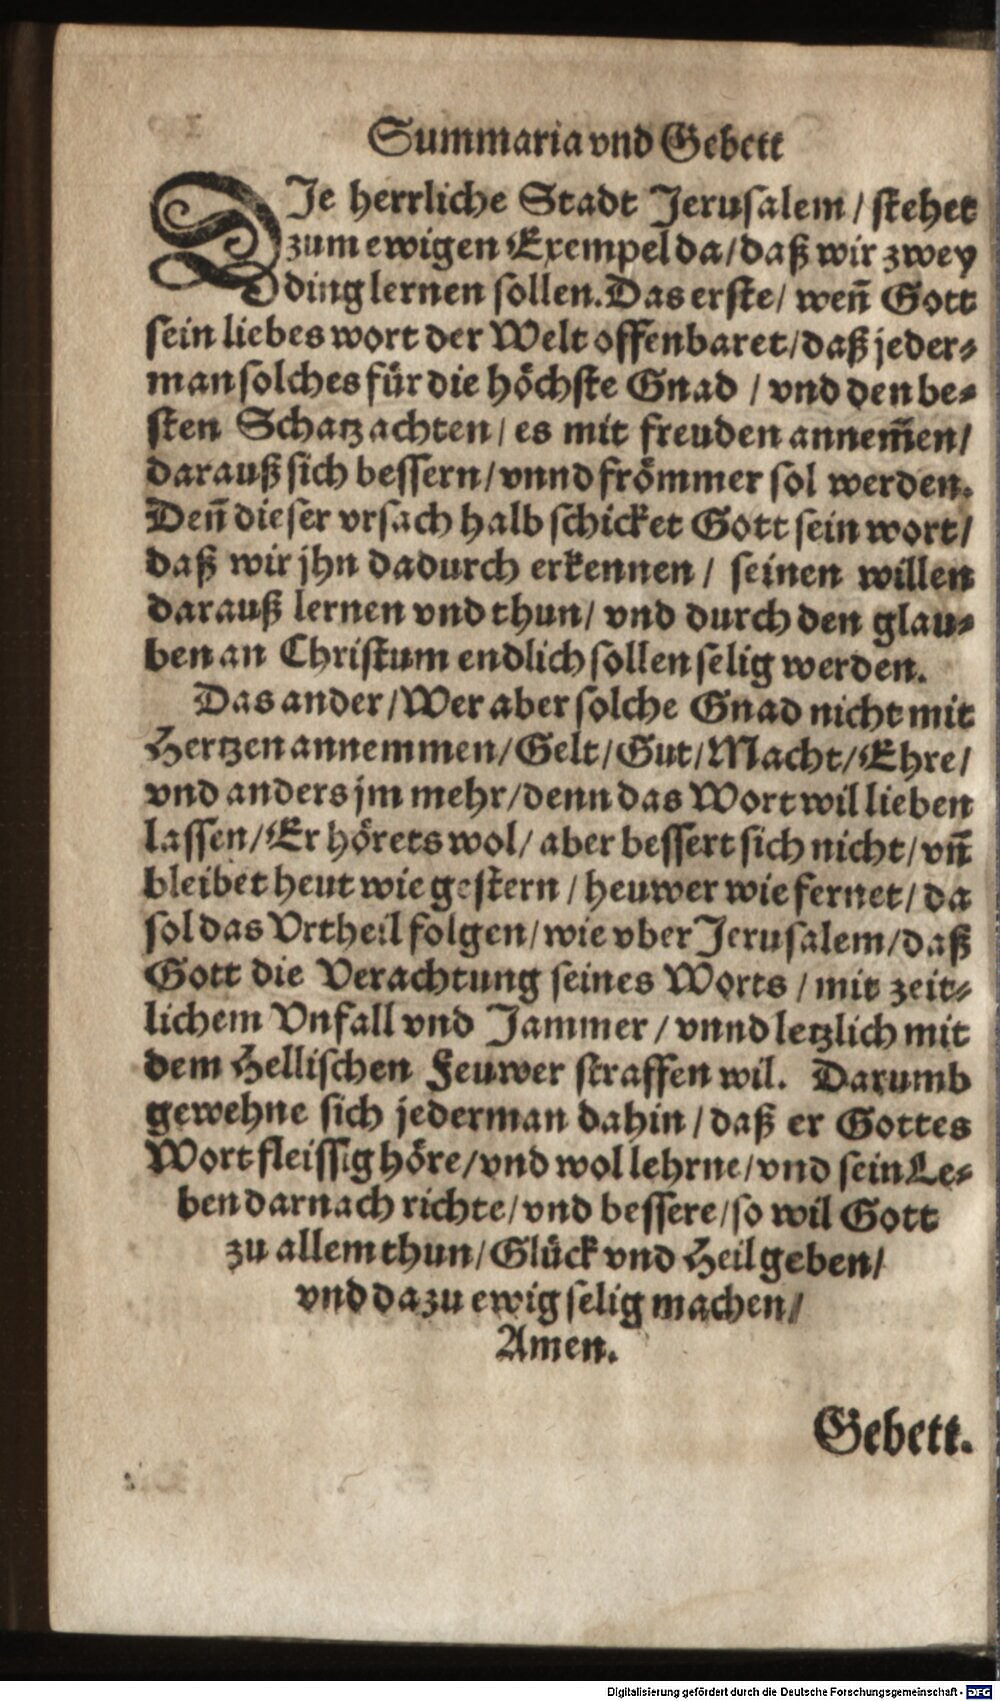 Summaria vnd Gebett
DJe herrliche Stadt Jerusalem / stehet
zum ewigen Exempel da / daß wir zwey
ding lernen sollen. Das erste / weñ Gott
sein liebes wort der Welt offenbaret / daß jeder-
man solches für die höchste Gnad / vnd den be-
sten Schatz achten / es mit freuden annem̃en /
darauß sich bessern / vnnd frömmer sol werden.
Deñ dieser vrsach halb schicket Gott sein wort /
daß wir jhn dadurch erkennen / seinen willen
darauß lernen vnd thun / vnd durch den glau-
ben an Christum endlich sollen selig werden.
Das ander / Wer aber solche Gnad nicht mit
Hertzen annemmen / Gelt / Gut / Macht / Ehre /
vnd anders jm mehr / denn das Wort wil lieben
lassen / Er hörets wol / aber bessert sich nicht / vñ
bleibet heut wie gestern / heuwer wie fernet / da
sol das Vrtheil folgen / wie vber Jerusalem / daß
Gott die Verachtung seines Worts / mit zeit-
lichem Vnfall vnd Jammer / vnnd letzlich mit
dem Hellischen Feuwer straffen wil. Darumb
gewehne sich jederman dahin / daß er Gottes
Wort fleissig höre / vnd wol lehrne / vnd sein Le-
ben darnach richte / vnd bessere / so wil Gott
zu allem thun / Glück vnd Heil geben /
vnd dazu ewig selig machen /
Amen.
Gebett.
Digitalisierung gefördert durch die Deutsche Forschungsgemeinschaft - DFG